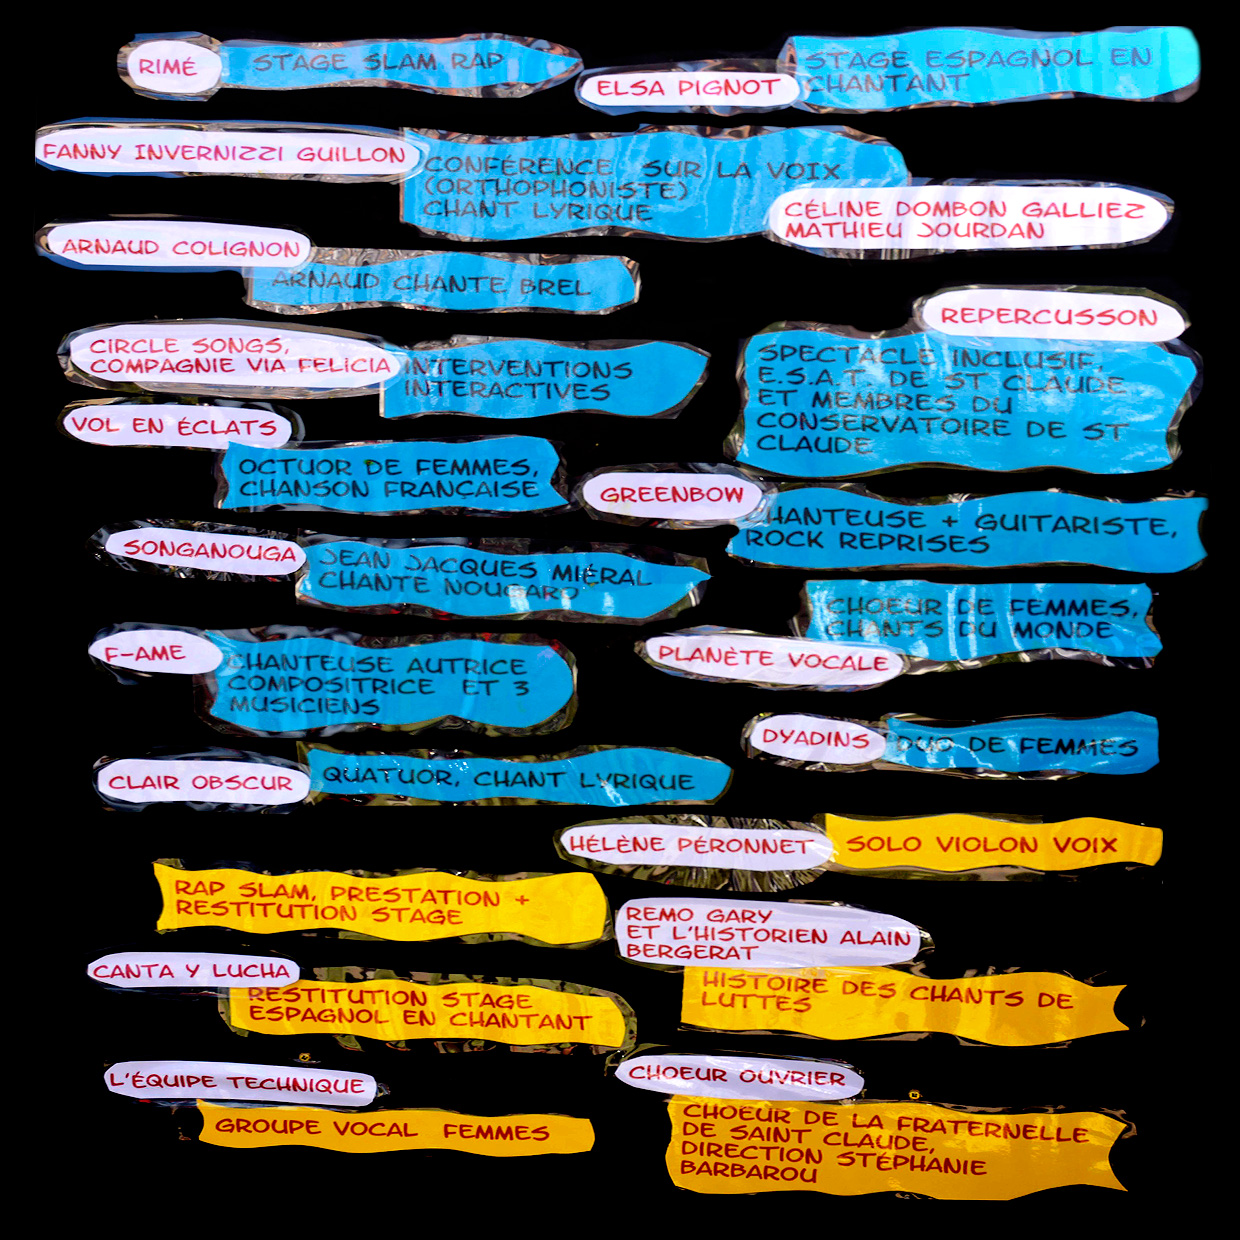 RIMÉ
STAGE SLAM RAP
ELSA PIGNOT
STAGE ESPAGNOL EN
CHANTANT
FANNY INVERNIZZI GUILLON
CONFÉRENCE SUR LA VOIX
(ORTHOPHONISTE)
CHANT LYRIQUE
CÉLINE DOMBON GALLIEZ
MATHIEU JOURDAN
ARNAUD COLIGNON
ARNAUD CHANTE BREL
REPERCUSSON
SPECTACLE INCLUSIF,
E.S.A.T. DE ST CLAUDE
ET MEMBRES DU
CONSERVATOIRE DE ST
CLAUDE
CIRCLE SONGS,
COMPAGNIE VIA FELICIA
INTERVENTIONS
INTERACTIVES
VOL EN ÉCLATS
OCTUOR DE FEMMES,
CHANSON FRANÇAISE
GREENBOW
CHANTEUSE + GUITARISTE,
ROCK REPRISES
SONGANOUGA
JEAN JACQUES MIÉRAL
CHANTE NOUGARO
CHOEUR DE FEMMES,
CHANTS DU MONDE
PLANÈTE VOCALE
F-AME
CHANTEUSE AUTRICE
COMPOSITRICE ET 3
MUSICIENS
DYADINS
DUO DE FEMMES
CLAIR OBSCUR
QUATUOR, CHANT LYRIQUE
HÉLÈNE PÉRONNET
SOLO VIOLON VOIX
RAP SLAM, PRESTATION +
RESTITUTION STAGE
REMO GARY
ET L'HISTORIEN ALAIN
BERGERAT
HISTOIRE DES CHANTS DE
LUTTES
CANTA Y LUCHA
RESTITUTION STAGE
ESPAGNOL EN CHANTANT
L'ÉQUIPE TECHNIQUE
GROUPE VOCAL FEMMES
CHOEUR OUVRIER
CHOEUR DE LA FRATERNELLE
DE SAINT CLAUDE,
DIRECTION STÉPHANIE
BARBAROU